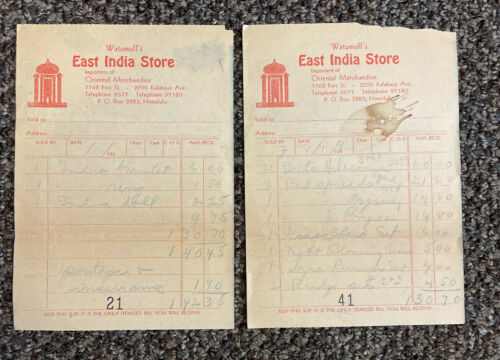 Watumull's
East India Store
Importers of
Oriental Merchandise
1162 Fort St. -- 2295 Kalakaua Ave.
Telephone 2571 Telephone 91180
P. O. Box 3283, Honolulu
Sold to
Address
SOLD BY DATE Chge. Cash C.O.D. AMT. RECD.
1 India 6 00
1 " ring 1 50
1 India doll 2 25
9 75
130 70
140 45
postage &
insurance 1 90
21 142 35
KEEP THIS SLIP. IT IS THE ONLY ITEMIZED BILL YOU WILL RECEIVE.
Watumull's
East India Store
Importers of
Oriental Merchandise
1162 Fort St. -- 2295 Kalakaua Ave.
Telephone 2571 Telephone 91180
P. O. Box 3283, Honolulu
Sold to
Address
SOLD BY DATE Chge. Cash C.O.D. AMT. RECD.
60 00
2 21 60
1 Organdy 14 80
1 " 14 80
1 Grass Set 6 00
1 Night Blooming 5 00
1 Set 4 00
2 Bridge sets 4 50
41 130 70
KEEP THIS SLIP. IT IS THE ONLY ITEMIZED BILL YOU WILL RECEIVE.